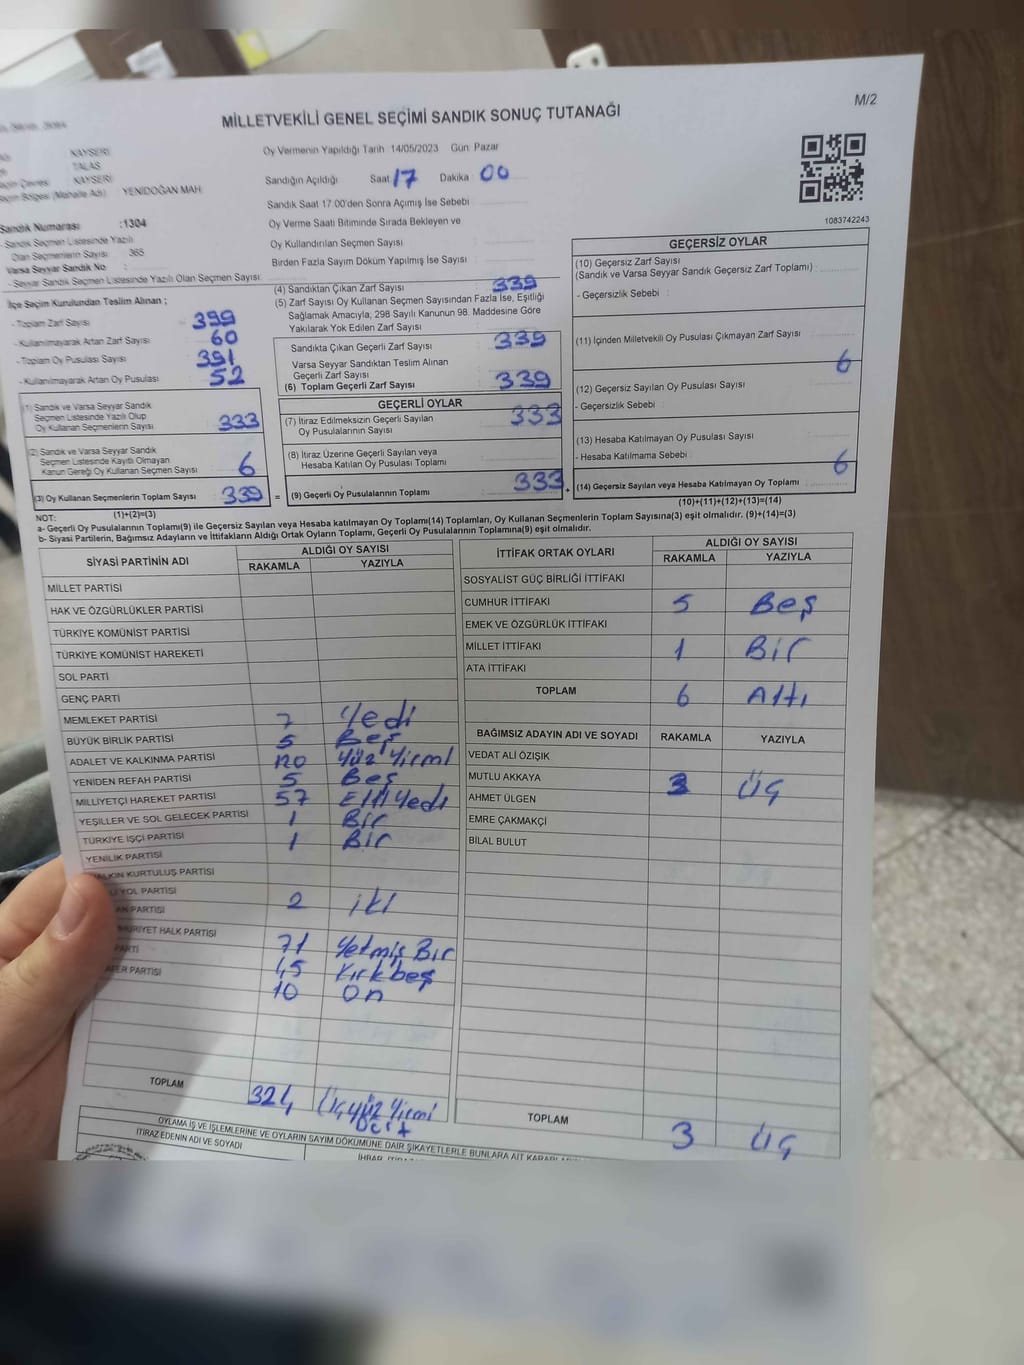 M/2
MİLLETVEKİLİ GENEL SEÇİMİ SANDIK SONUÇ TUTANAĞI
KAYSERİ
TALAS
KAYSERİ
(Mahalle Adı) YENİDOĞAN MAH.
Oy Vermenin Yapıldığı Tarih 14/05/2023 Gün Pazar
Sandığın Açıldığı Saat 17 Dakika 00
Sandık Saat 17:00'den Sonra Açımış İse Sebebi
Oy Verme Saati Bitiminde Sırada Bekleyen ve
Oy Kullandırılan Seçmen Sayısı
Birden Fazla Sayım Döküm Yapılmış İse Sayısı
1083742243
Sandık Numarası :1304
- Sandık Seçmen Listesinde Yazılı
Olan Seçmenlerin Sayısı 365
Varsa Seyyar Sandık No :
- Seyyar Sandık Seçmen Listesinde Yazılı Olan Seçmen Sayısı:
İlçe Seçim Kurulundan Teslim Alınan ;
- Toplam Zarf Sayısı 399
- Kullanılmayarak Artan Zarf Sayısı 60
- Toplam Oy Pusulası Sayısı 391
- Kullanılmayarak Artan Oy Pusulası 52
(1) Sandık ve Varsa Seyyar Sandık
Seçmen Listesinde Yazılı Olup
Oy Kullanan Seçmenlerin Sayısı 333
(2) Sandık ve Varsa Seyyar Sandık
Seçmen Listesinde Kayıtlı Olmayan
Kanun Gereği Oy Kullanan Seçmen Sayısı 6
(3) Oy Kullanan Seçmenlerin Toplam Sayısı 339 =
(1)+(2)=(3)
(4) Sandıktan Çıkan Zarf Sayısı : 339
(5) Zarf Sayısı Oy Kullanan Seçmen Sayısından Fazla İse, Eşitliği
Sağlamak Amacıyla, 298 Sayılı Kanunun 98. Maddesine Göre
Yakılarak Yok Edilen Zarf Sayısı :
Sandıkta Çıkan Geçerli Zarf Sayısı : 339
Varsa Seyyar Sandıktan Teslim Alınan
Geçerli Zarf Sayısı :
(6) Toplam Geçerli Zarf Sayısı : 339
GEÇERLİ OYLAR
(7) İtiraz Edilmeksizin Geçerli Sayılan
Oy Pusulalarının Sayısı : 333
(8) İtiraz Üzerine Geçerli Sayılan veya
Hesaba Katılan Oy Pusulası Toplamı
(9) Geçerli Oy Pusulalarının Toplamı : 333 +
GEÇERSİZ OYLAR
(10) Geçersiz Zarf Sayısı
(Sandık ve Varsa Seyyar Sandık Geçersiz Zarf Toplamı) :
- Geçersizlik Sebebi :
(11) İçinden Milletvekili Oy Pusulası Çıkmayan Zarf Sayısı :
6
(12) Geçersiz Sayılan Oy Pusulası Sayısı :
- Geçersizlik Sebebi :
(13) Hesaba Katılmayan Oy Pusulası Sayısı :
- Hesaba Katılmama Sebebi :
6
(14) Geçersiz Sayılan veya Hesaba Katılmayan Oy Toplamı :
(10)+(11)+(12)+(13)=(14)
NOT:
a- Geçerli Oy Pusulalarının Toplamı(9) ile Geçersiz Sayılan veya Hesaba katılmayan Oy Toplamı(14) Toplamları, Oy Kullanan Seçmenlerin Toplam Sayısına(3) eşit olmalıdır. (9)+(14)=(3)
b- Siyasi Partilerin, Bağımsız Adayların ve İttifakların Aldığı Ortak Oyların Toplamı, Geçerli Oy Pusulalarının Toplamına(9) eşit olmalıdır.
SİYASİ PARTİNİN ADI ALDIĞI OY SAYISI
RAKAMLA YAZIYLA
MİLLET PARTİSİ
HAK VE ÖZGÜRLÜKLER PARTİSİ
TÜRKİYE KOMÜNİST PARTİSİ
TÜRKİYE KOMÜNİST HAREKETİ
SOL PARTİ
GENÇ PARTİ
MEMLEKET PARTİSİ 7 Yedi
BÜYÜK BİRLİK PARTİSİ 5 Beş
ADALET VE KALKINMA PARTİSİ 120 Yüz Yirmi
YENİDEN REFAH PARTİSİ 5 Beş
MİLLİYETÇİ HAREKET PARTİSİ 57 Elli Yedi
YEŞİLLER VE SOL GELECEK PARTİSİ 1 Bir
TÜRKİYE İŞÇİ PARTİSİ 1 Bir
YENİLİK PARTİSİ
KURTULUŞ PARTİSİ
YOL PARTİSİ
PARTİSİ 2 iki
HALK PARTİSİ 71 Yetmiş Bir
PARTİ 45 Kırkbeş
PARTİSİ 10 On
TOPLAM 324 Üçyüz Yirmi
Dört
İTTİFAK ORTAK OYLARI ALDIĞI OY SAYISI
RAKAMLA YAZIYLA
SOSYALİST GÜÇ BİRLİĞİ İTTİFAKI
CUMHUR İTTİFAKI 5 Beş
EMEK VE ÖZGÜRLÜK İTTİFAKI
MİLLET İTTİFAKI 1 Bir
ATA İTTİFAKI
TOPLAM 6 Altı
BAĞIMSIZ ADAYIN ADI VE SOYADI RAKAMLA YAZIYLA
VEDAT ALİ ÖZIŞIK
MUTLU AKKAYA 3 Üç
AHMET ÜLGEN
EMRE ÇAKMAKÇİ
BİLAL BULUT
TOPLAM 3 Üç
OYLAMA İŞ VE İŞLEMLERİNE VE OYLARIN SAYIM DÖKÜMÜNE DAİR ŞİKAYETLERLE BUNLARA AİT
İTİRAZ EDENİN ADI VE SOYADI